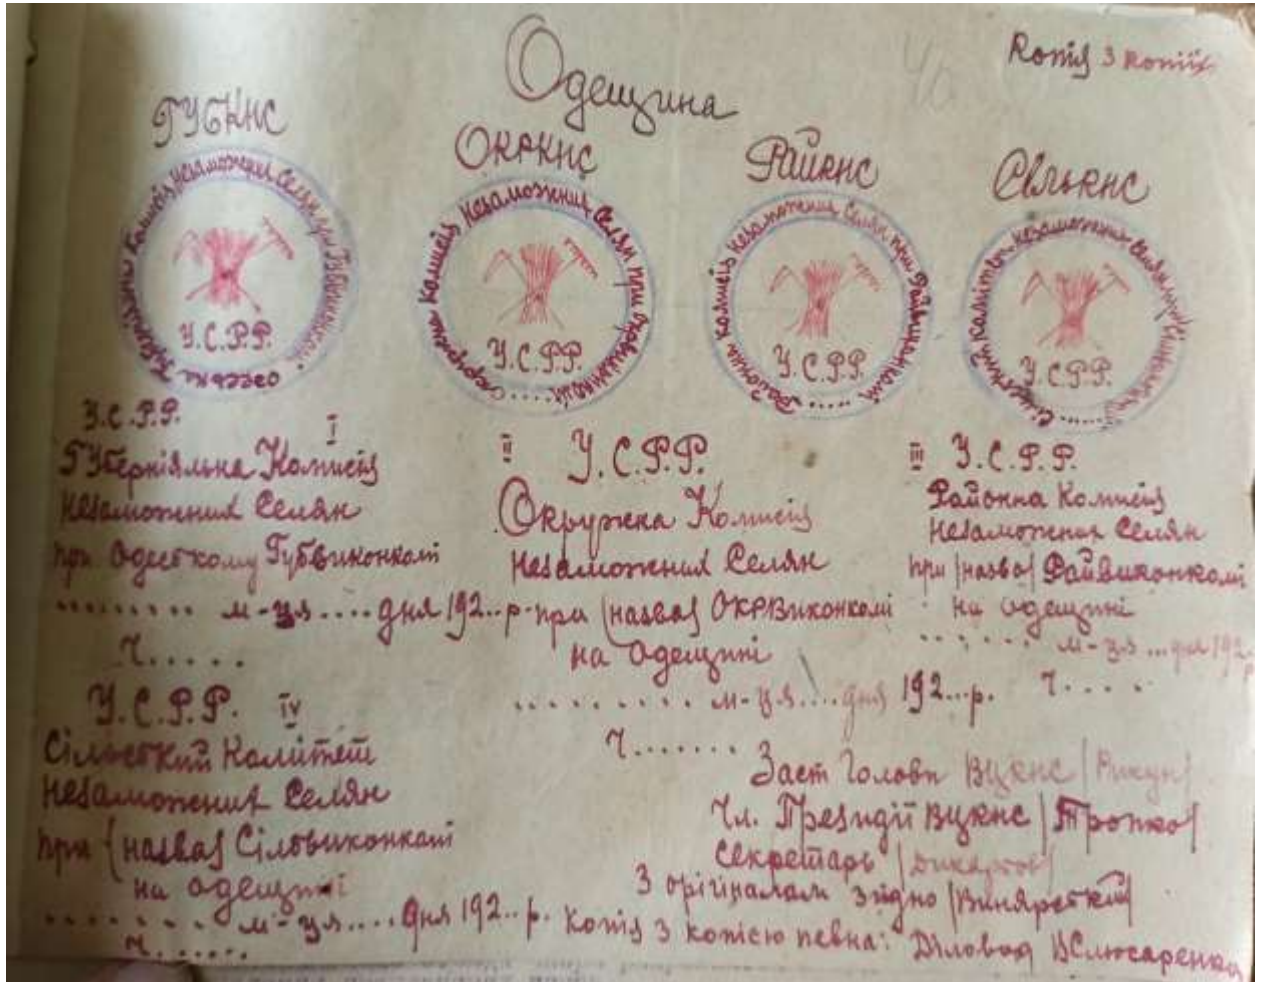 Копія з копіїх
Одещина
ГУБКНС
ОКРКНС
РайКНС
СільКНС
Губерніяльна Комисія Незаможних Селян при Губвиконкомі Одеськ
Окружна комисія Незаможних Селян при Окрвиконкомі .....
Районна комисія Незаможних Селян при Райвиконкомі .....
Сільський Комітет незаможних Селян при .....
У.С.Р.Р.
У.С.Р.Р.
У.С.Р.Р.
У.С.Р.Р.
У.С.Р.Р.
I
Губерніяльна Комисія
Незаможних Селян
при Одеському Губвиконкомі
......... м-ця .... дня 192..р.
Ч.....
II У.С.Р.Р.
Окружна Комисія
Незаможних Селян
при /назва/ ОКРВиконкомі
на Одещині
......... м-ця .... дня 192...р.
Ч.......
III У.С.Р.Р.
Районна Комисія
Незаможних Селян
при /назва/ Райвиконкомі
на Одещині
...... м-ця ... дня 192..р
Ч.....
У.С.Р.Р. IV
Сільський Комітет
Незаможних Селян
при /назва/ Сілвиконкомі
на Одещині
....... м-ця .... дня 192..р.
Ч......
Заст Голови ВЦКНС
Чл. Президії ВЦКНС /Тропко/
Секретарь
З орігіналом згідно /Винярський/
Копія з копією певна: Діловод ВСлюсаренко